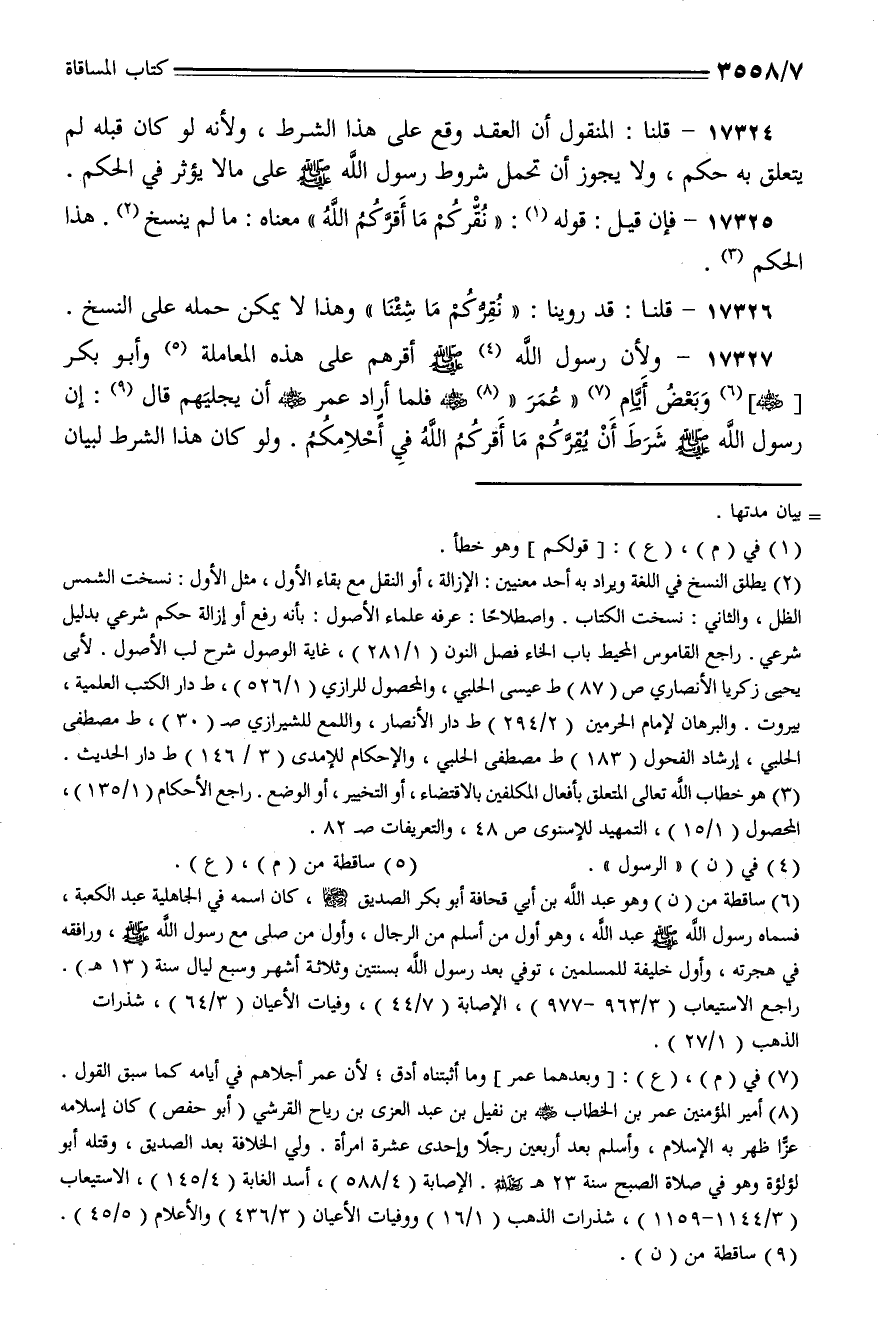 ٣٥٥٨/٧ كتاب المساقاة
١٧٣٢٤ - قلنا : المنقول أن العقد وقع على هذا الشرط ، ولأنه لو كان قبله لم
يتعلق به حكم ، ولا يجوز أن تحمل شروط رسول اللَّه ﷺ على مالا يؤثر في الحكم .
١٧٣٢٥ - فإن قيل : قوله (١) : « نُقُرُّكُمْ مَا أَقَرَّكُمُ اللَّهُ » معناه : ما لم ينسخ (٢) . هذا
الحكم (٣) .
١٧٣٢٦ - قلنا : قد روينا : « نُقِرُّكُمْ مَا شِئْنَا » وهذا لا يمكن حمله على النسخ .
١٧٣٢٧ - ولأن رسول اللَّه (٤) ﷺ أقرهم على هذه المعاملة (٥) وأبو بكر
[ ﵁ ] (٦) وَبَعْضُ أَيَّامِ (٧) « عُمَرَ « (٨) ﵁ فلما أراد عمر ﵁ أن يجليَهم قال (٩) : إن
رسول اللَّه ﷺ شَرَطَ أَنْ يُقِرَّكُمْ مَا أَقركُمُ اللَّهُ فِي أَحْلامِكُمُ . ولو كان هذا الشرط لبيان
= بيان مدتها .
(١) في ( م ) ، ( ع ) : [ قولكم ] وهو خطأ .
(٢) يطلق النسخ في اللغة ويراد به أحد معنيين : الإزالة ، أو النقل مع بقاء الأول ، مثل الأول : نسخت الشمس
الظل ، والثاني : نسخت الكتاب . واصطلاحًا : عرفه علماء الأصول : بأنه رفع أو إزالة حكم شرعي بدليل
شرعي . راجع القاموس المحيط باب الخاء فصل النون ( ٢٨١/١ ) ، غاية الوصول شرح لب الأصول . لأبى
يحيى زكريا الأنصاري ص ( ٨٧ ) ط عيسى الحلبي ، والمحصول للرازي ( ٥٢٦/١ ) ، ط دار الكتب العلمية ،
بيروت . والبرهان لإمام الحرمين ( ٢٩٤/٢ ) ط دار الأنصار ، واللمع للشيرازي صـ ( ٣٠ ) ، ط مصطفى
الحلبي ، إرشاد الفحول ( ١٨٣ ) ط مصطفى الحلبي ، والإحكام للإمدى ( ٣ / ١٤٦ ) ط دار الحديث .
(٣) هو خطاب اللَّه تعالى المتعلق بأفعال المكلفين بالاقتضاء ، أو التخيير ، أو الوضع . راجع الأحكام ( ١٣٥/١ ) ،
المحصول ( ١٥/١ ) ، التمهيد للإسنوى ص ٤٨ ، والتعريفات صـ ٨٢ .
(٤) في ( ن ) « الرسول » . (٥) ساقطة من ( م ) ، ( ع ) .
(٦) ساقطة من ( ن ) وهو عبد اللَّه بن أبي قحافة أبو بكر الصديق ﵁ ، كان اسمه في الجاهلية عبد الكعبة ،
فسماه رسول اللَّه ﷺ عبد اللَّه ، وهو أول من أسلم من الرجال ، وأول من صلى مع رسول اللَّه ﷺ ، ورافقه
في هجرته ، وأول خليفة للمسلمين ، توفي بعد رسول اللَّه بسنتين وثلاثة أشهر وسبع ليال سنة ( ١٣ هـ ) .
راجع الاستيعاب ( ٩٦٣/٣ -٩٧٧ ) ، الإصابة ( ٤٤/٧ ) ، وفيات الأعيان ( ٦٤/٣ ) ، شذرات
الذهب ( ٢٧/١ ) .
(٧) في ( م ) ، ( ع ) : [ وبعدهما عمر ] وما أثبتناه أدق ؛ لأن عمر أجلاهم في أيامه كما سبق القول .
(٨) أمير المؤمنين عمر بن الخطاب ﵁ بن نفيل بن عبد العزى بن رياح القرشي ( أبو حفص ) كان إسلامه
عزًّا ظهر به الإسلام ، وأسلم بعد أربعين رجلًا وإحدى عشرة امرأة . ولي الخلافة بعد الصديق ، وقتله أبو
لؤلؤة وهو في صلاة الصبح سنة ٢٣ هـ . الإصابة ( ٥٨٨/٤ ) ، أسد الغابة ( ١٤٥/٤ ) ، الاستيعاب
( ١١٤٤/٣-١١٥٩ ) ، شذرات الذهب ( ١٦/١ ) ووفيات الأعيان ( ٤٣٦/٣ ) والأعلام ( ٤٥/٥ ) .
(٩) ساقطة من ( ن ) .